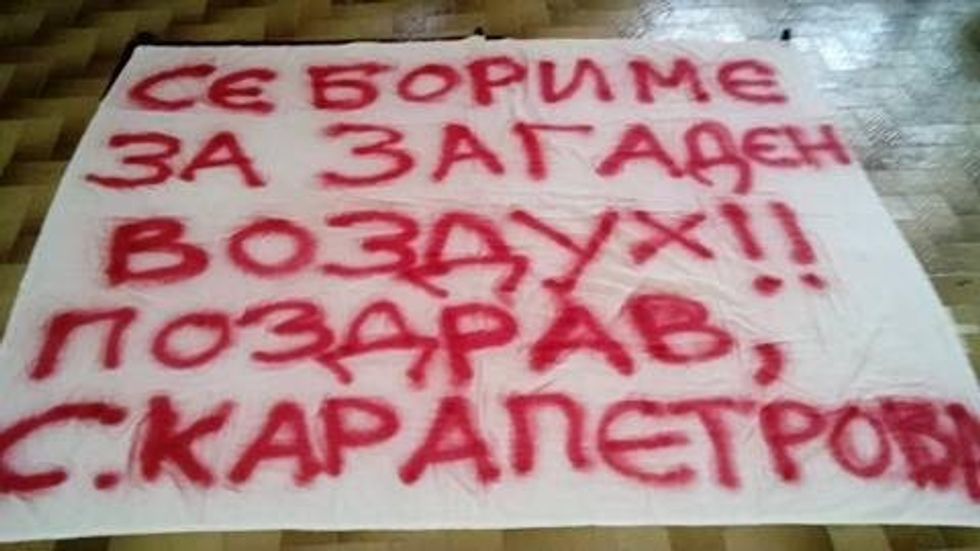 СЄ БОРИМЕ
ЗА ЗАГАДЕН
ВОЗДУХ!!
ПОЗДРАВ,
С.КАРАПЕТРОВИ